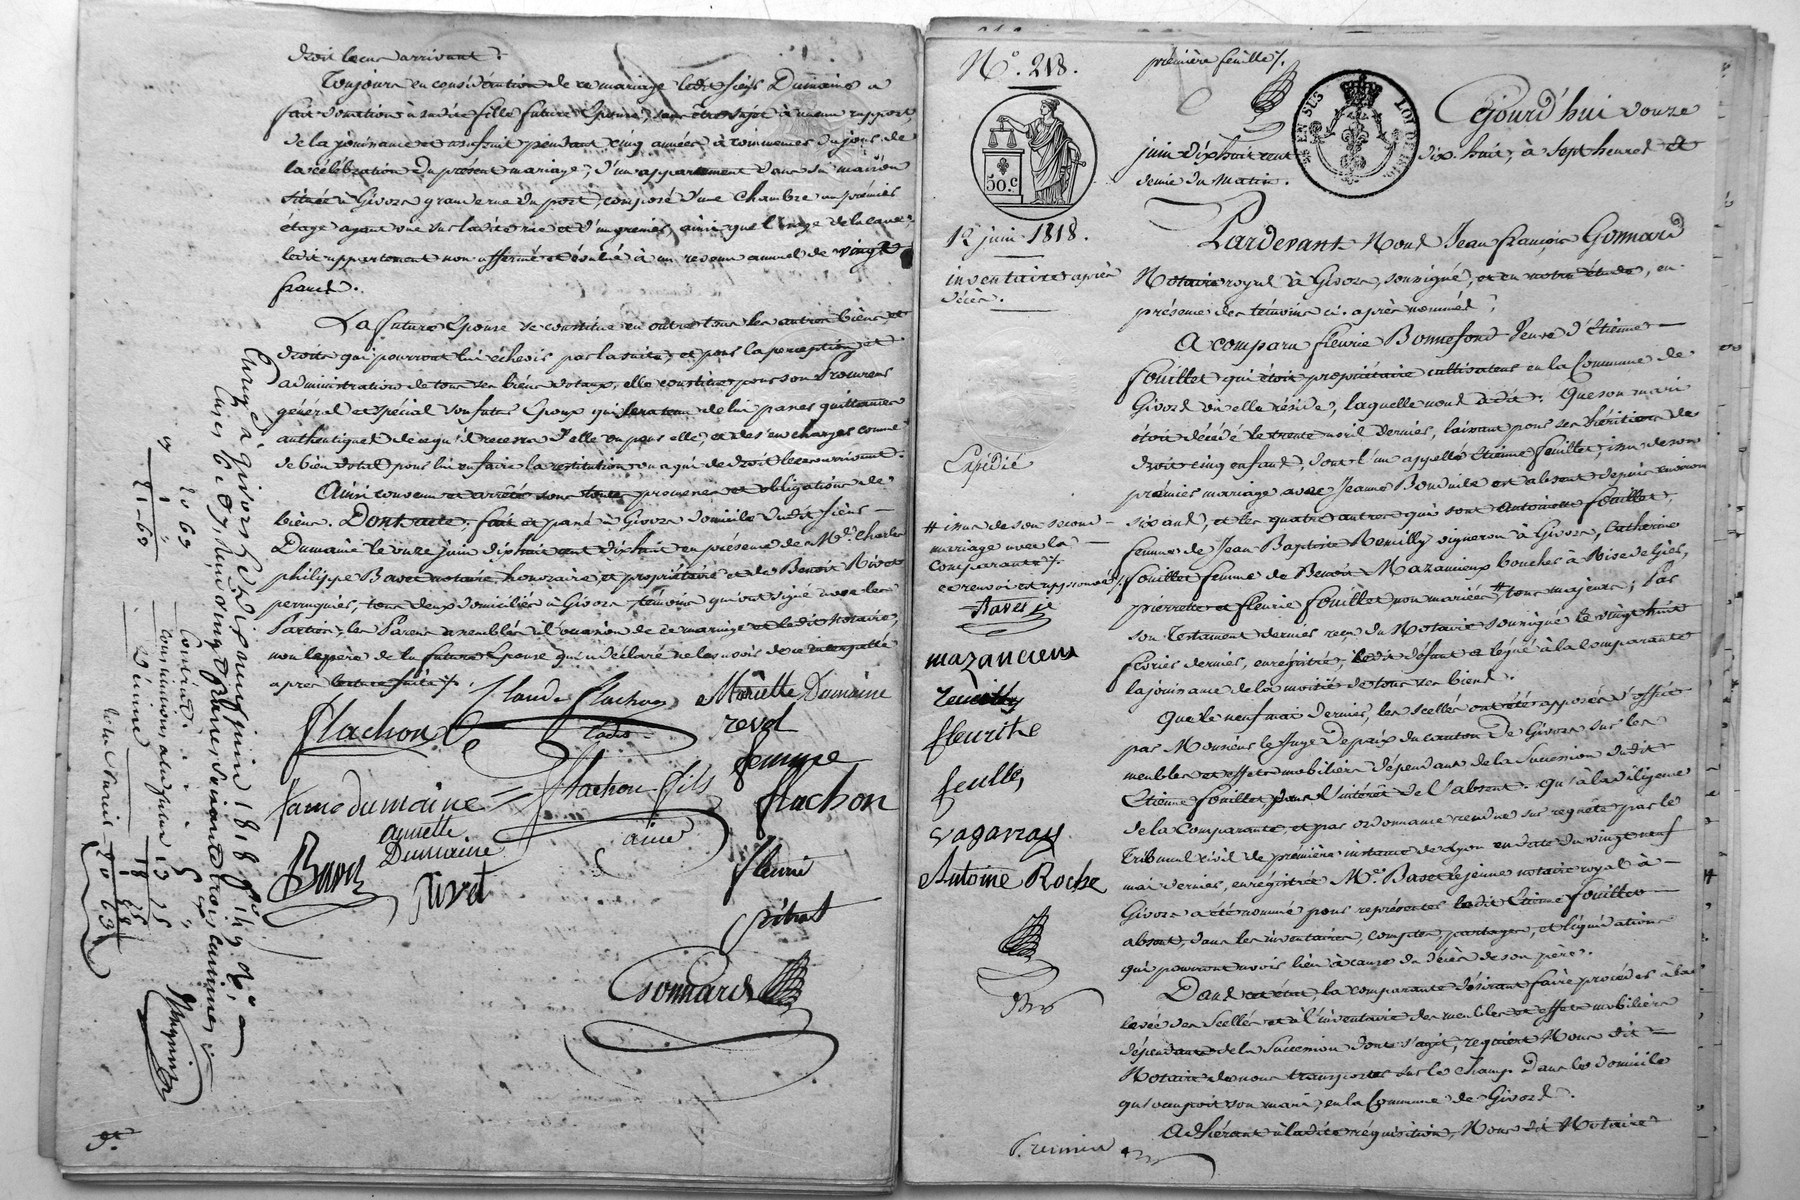 droit le cas arrivant.
Toujours en considération de ce mariage ledit sieur Dumaine a
fait donation à sadite fille future Epouse, sans être sujet à aucun rapport
de la jouissance et usufruit pendant cinq années à commencer du jour de
la célébration du présent mariage, d'un appartement dans sa maison
située à Givors grande rue du port, composé d'une Chambre au premier
étage ayant vue sur ladite rue et d'un grenier, ainsi que l'usage de la cave,
ledit appartement non affermé et évalué à un revenu annuel de vingt
francs.
La future Epouse se constitue en outre tous les autres biens et
droits qui pourront lui échevir par la suite, et pour la perception et
administration de tous ses biens dotaux, elle constitue pour son Procureur
général et spécial son futur Epoux qui sera tenu de lui passer quittances
authentiques de ce qu'il recevra d'elle ou pour elle, et de s'en charger comme
de bien dotal pour lui en faire la restitution ou a qui de droit le cas arrivant.
Ainsi convenu et arrêté sous toutes promesses et obligations de
biens. Dont acte. fait et passé à Givors domicile dudit sieur
Dumaine le onze juin dix huit cent dix huit en présence de Mr. Charles
philippe Bavet notaire honoraire, et propriétaire et de Benoit Rivet
perruquier, tous deux domiciliés à Givors, témoins qui ont signé avec les
Parties, les Parens assemblés à l'occasion de ce mariage et ledit Notaire,
non le père de la future Epouse qui a déclaré ne le savoir de ce interpellé
après lecture faite.
Claude flachon Mariette Dumaine
flachon
cadet revol
femme
flachon fils flachon
fame dumaine
annette
Dumaine aine
Bavet Rivet fleurie
pitrat
Gonnard
Enregé à Givors le dix neuf juin 1818 fo 149
Reçu
cinq
soixante trois centimes
9
20 63
1 "
21 - 63
Contrat 5 "
Donation du futur 13 75
Dixme
18 75
1 88
20 63
No. 218.
première feuille.
50.c
LOI
12 juin 1818.
inventaire après
décès.
Cejourd'hui douze
juin dix huit cent dix huit, à sept heures et
demie du matin.
Pardevant Nous Jean françois Gonnard
Notaire royal à Givors, soussigné, et en notre étude, en
présence des témoins ci-après nommés,
A comparu fleurie Bonnefond Veuve d'Etienne
fouillet qui étoit propriétaire cultivateur en la Commune de
Givors où elle réside, laquelle nous a dit: Que son mari
étoit décédé le trente avril dernier, laissant pour ses héritiers de
droit cinq enfans, dont l'un appellé Etienne fouillet, issu de son
premier mariage avec Jeanne est absent depuis environ
six ans, et les quatre autres qui sont Antoinette fouillet,
femme de Jean Baptiste Remilly vigneron à Givors, Catherine
fouillet femme de Benoit Mazancieux boucher à Rive de Gier,
pierrette et fleurie fouillet non mariées # tous majeurs; Par
son Testament dernier reçu du Notaire soussigné le vingt huit
février dernier, enregistré, ledit défunt a légué à la comparante
la jouissance de la moitié de tous ses biens.
Que le neuf mai dernier, les scellés ont été apposés d'office
par Monsieur le Juge De paix du canton De Givors sur les
meubles et effets mobiliers dépendant de la Succession dudit
Etienne fouillet, pour l'intérêt de l'absent. Qu'à la diligence
de la Comparante, et par ordonnance rendue sur requête par le
Tribunal civil de première instance de Lyon en date du vingt neuf
mai dernier, enregistrée Me. Bavet le jeune notaire royal à
Givors a été nommé pour représenter ledit Etienne fouillet
absent, dans les inventaires, comptes, partages, et liquidations
qui pourront avoir lieu à cause du décès de son père.
Dans cet état, la comparante désirant faire procéder à la
levée des Scellés et à l'inventaire des meubles et effets mobiliers
dépendants de la Succession dont s'agit, requiert Nous dit
Notaire de nous transporter sur le champ Dans le domicile
qu'occupoit son mari, en la Commune de Givors.
Adhérant à ladite réquisition, Nous dit Notaire
Expédié
# issue de son second
mariage avec la
Comparante.
ce renvoi est approuvé
Bavet je
mazancieux
remilly
fleurithe
feulle,
vaganay
Antoine Roche